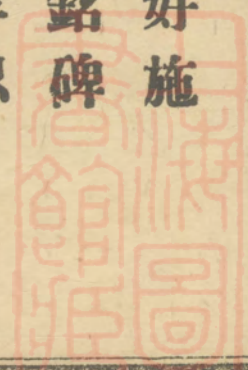 好施
銘碑
上海圖
書館藏